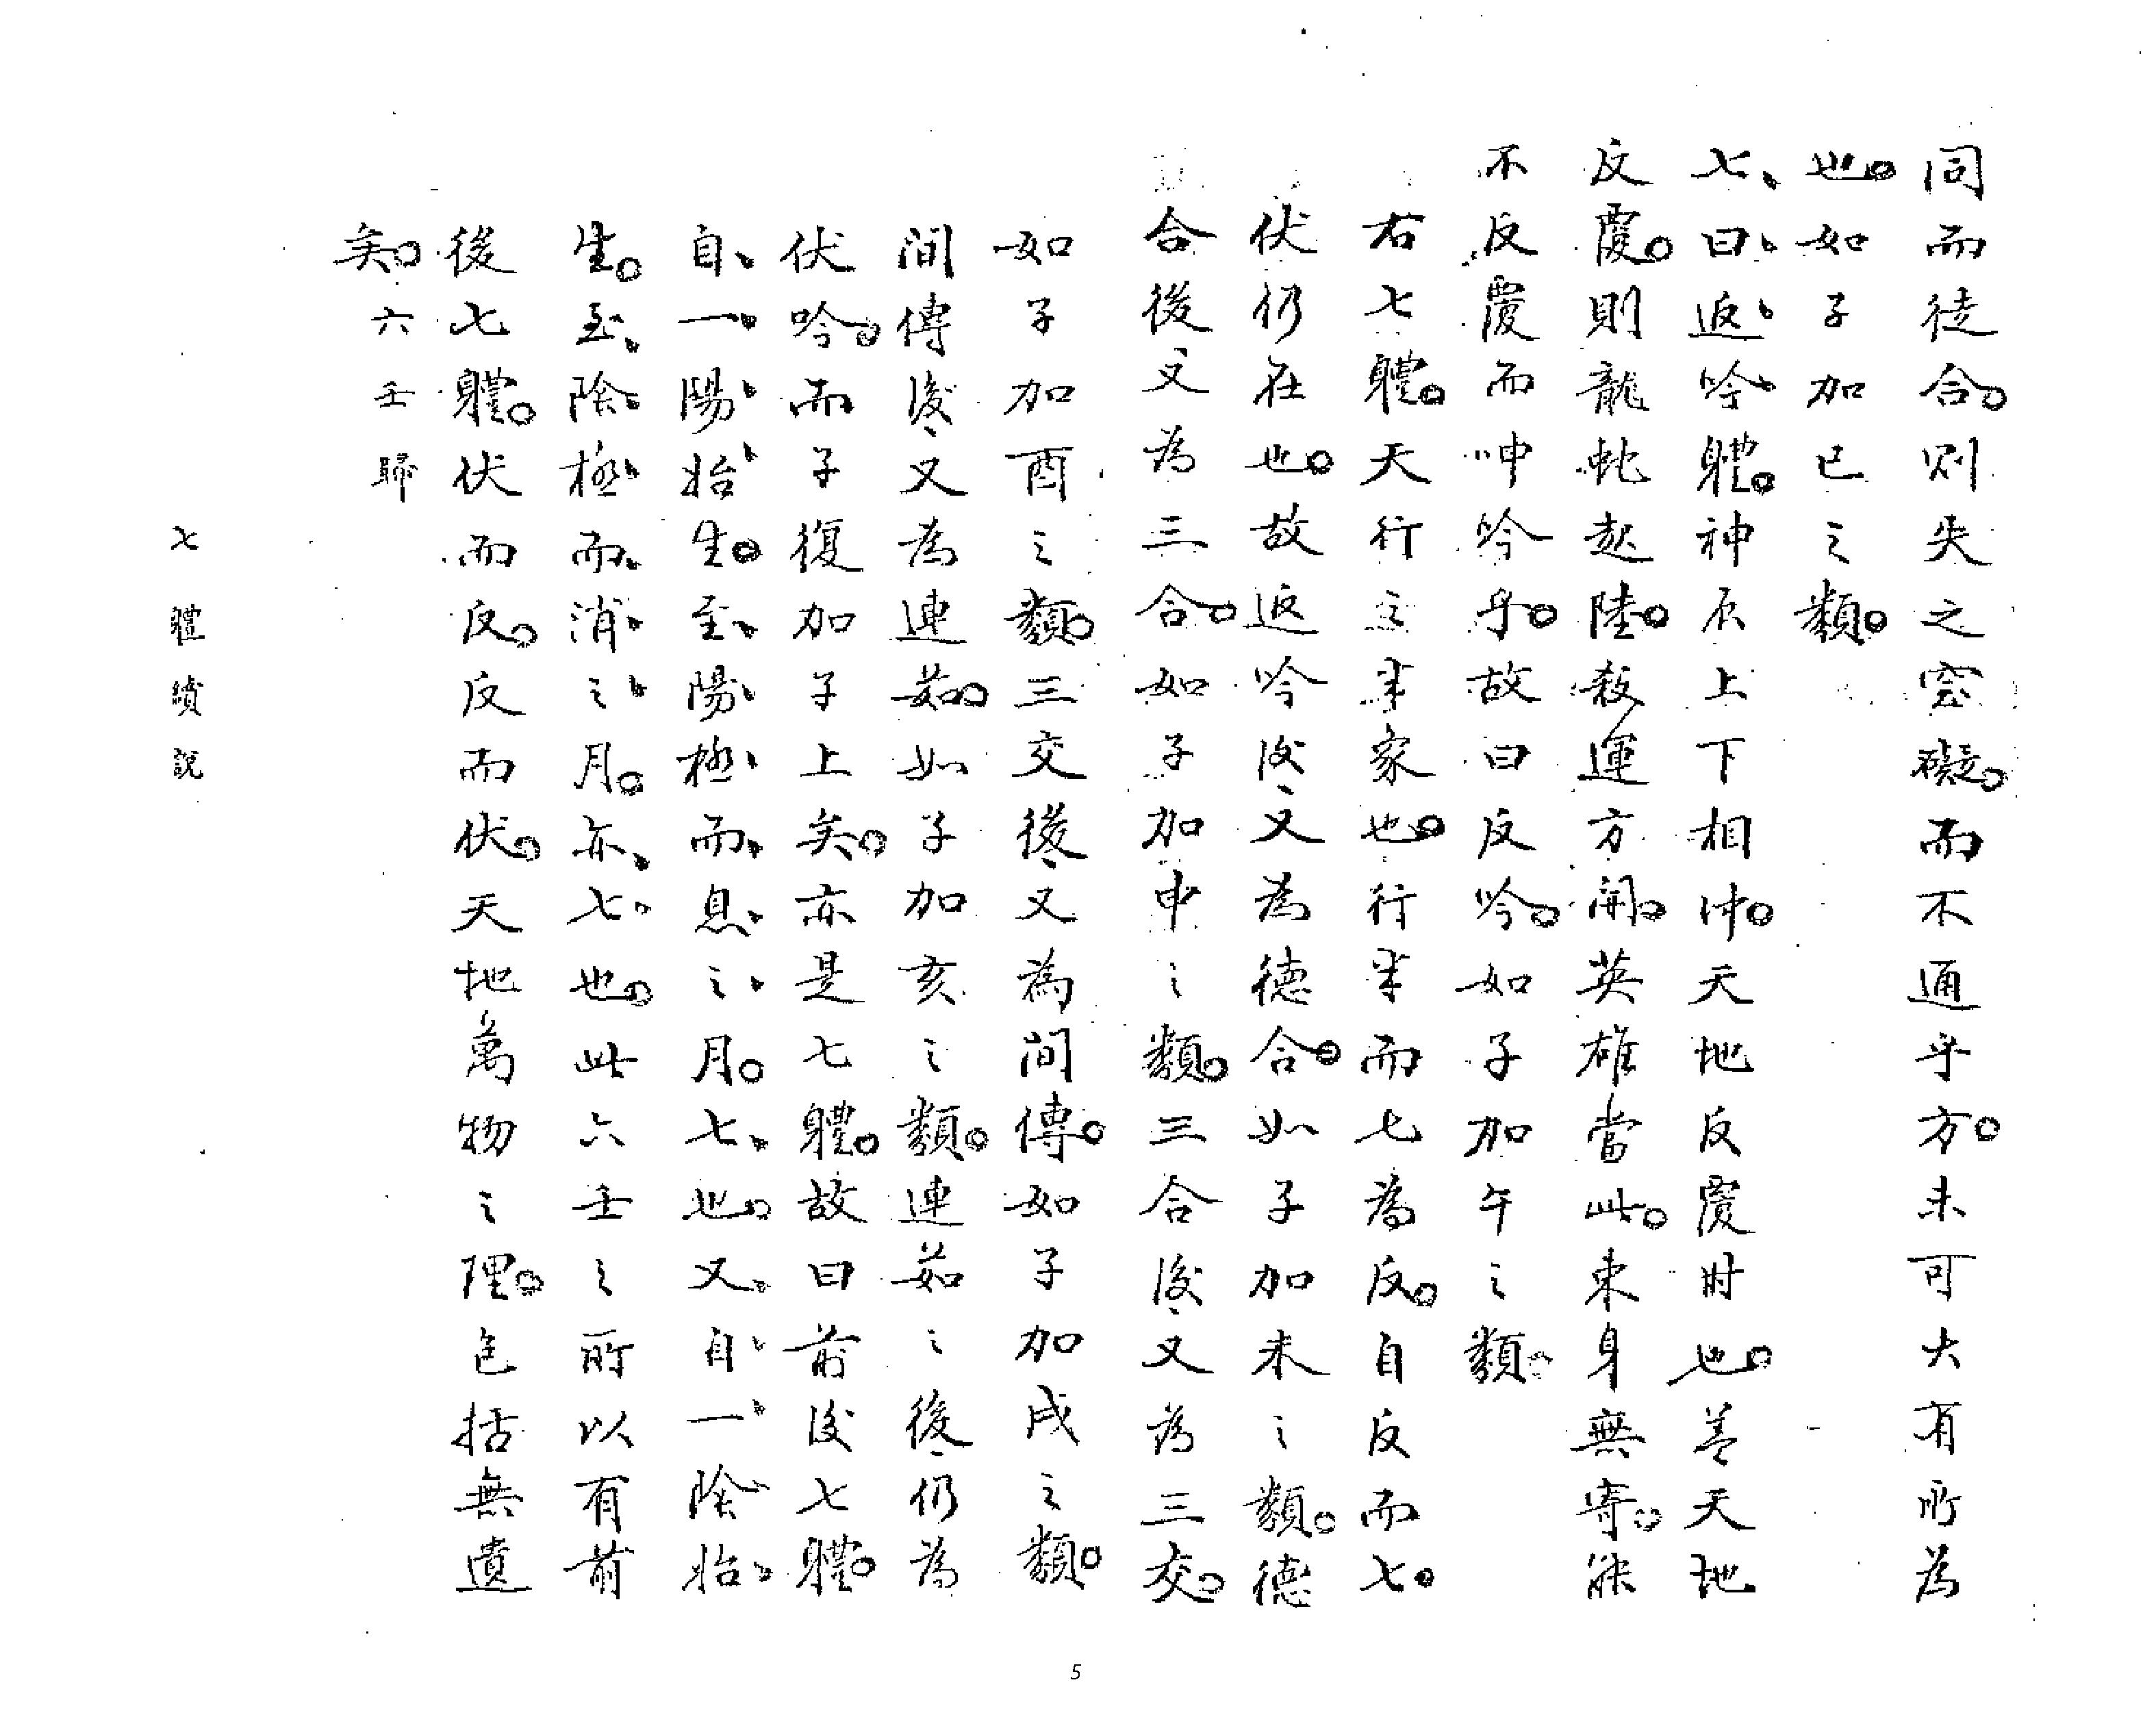 同而徒合。則失之窒礙。而不通乎方。未可大有所為
也。如子加巳之類。
七、曰、返、吟、體。神辰上下相冲。天地反覆時也。蓋天地
反覆。則龍蛇起陸。殺運方開。英雄當此。束身無寄。能
不反覆而呻吟乎。故曰反吟。如子加午之類。
右七體。天行之半家也。行半而七為反。自反而七。
伏仍在也。故返吟後又為德合。如子加未之類。德
合後又為三合。如子加申之類。三合後又為三交。
如子加酉之類。三交後又為間傳。如子加戌之類。
間傳後又為連茹。如子加亥之類。連茹之後仍為
伏吟。而子復加子上矣。亦是七體。故曰前後七體。
自、一、陽、始、生。至、陽、極、而、息、之、月。七、也。又、自、一、陰、始、
生。至、陰、極、而、消、之、月。亦、七、也。此六壬之所以有前
後七體。伏而反。反而伏。天地萬物之理。包括無遺
矣。六壬歸
七體續說
5